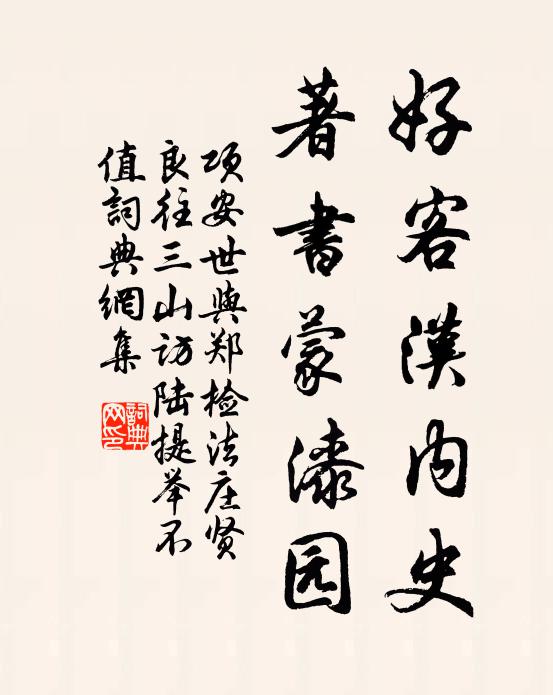 好客漢内史
著書蒙漆园
项安世與郑检法庄贤
良往三山访陆提举不
值詞典網集
詞典
网印